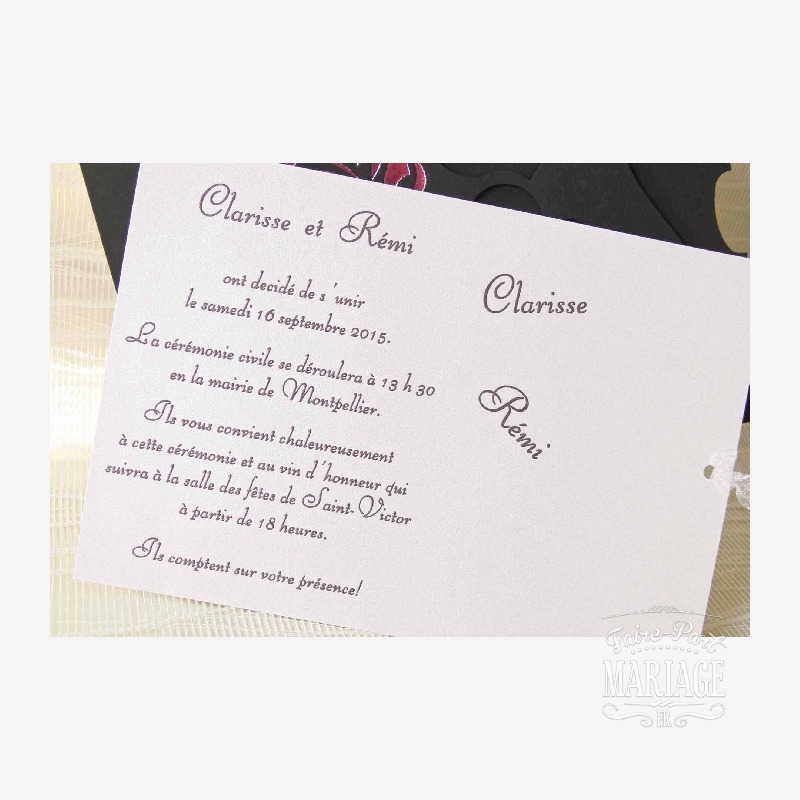 Clarisse et Rémi
ont decidé de s'unir
le samedi 16 septembre 2015.
La cérémonie civile se déroulera à 13 h 30
en la mairie de Montpellier.
Ils vous convient chaleureusement
à cette cérémonie et au vin d'honneur qui
suivra à la salle des fêtes de Saint-Victor
à partir de 18 heures.
Ils comptent sur votre présence!
Clarisse
Rémi
Faire-Part
MARIAGE
FR